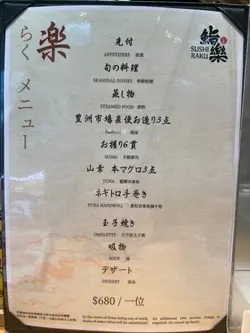 楽
らく メニュー
鮨樂
SUSHI
RAKU
先付
APPETIZERS 前菜
旬の料理
SEASONAL DISHES 季節料理
蒸し物
STEAMED FOOD 蒸物
豊洲市場直送お造り3点
Sashimi 刺身
お握り6貫
NIGIRI
山幸 本マグロ3点
TUNA
ネギトロ手巻き
TUNA HANDROLL
玉子焼き
OMELETTE 江戸前玉子燒
吸物
SOUP 湯
デザート
DESSERT 甜品
$680 / 一位